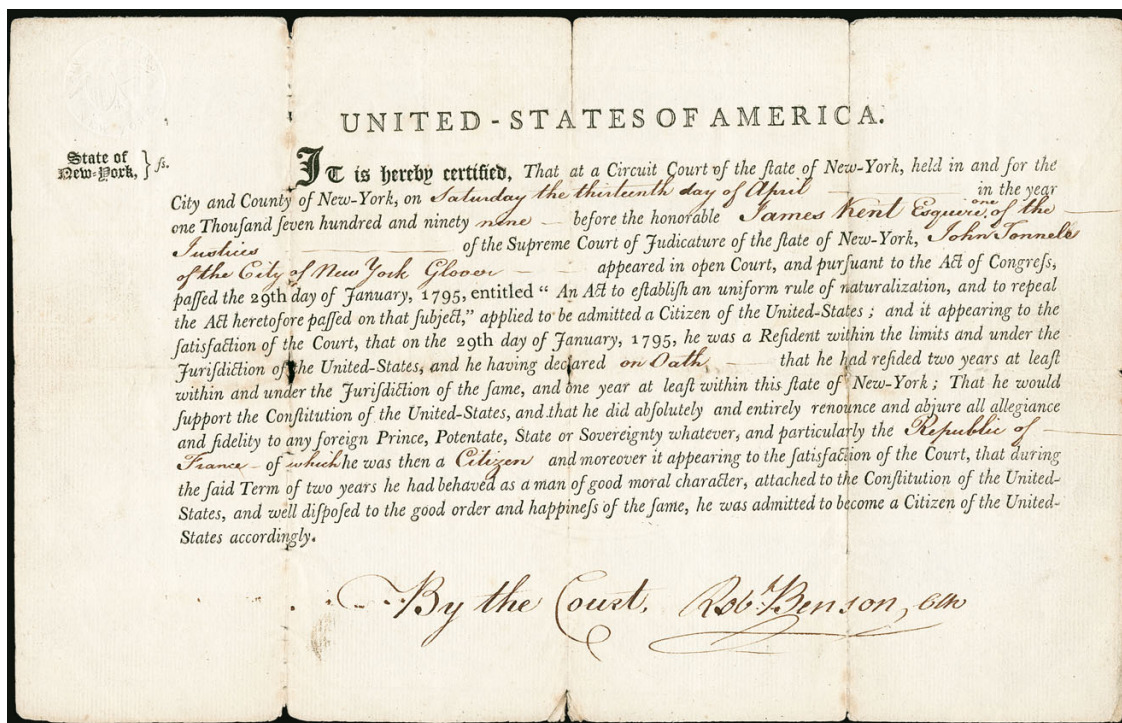 UNITED-STATES OF AMERICA.
State of
New-York, } ſs.
IT is hereby certified, That at a Circuit Court of the ſtate of New-York, held in and for the
City and County of New-York, on Saturday the thirteenth day of April — in the year
one Thouſand ſeven hundred and ninety nine — before the honorable James Kent Esquire, one of the —
Justices — of the Supreme Court of Judicature of the ſtate of New-York, John Tonnele
of the City of New York Glover — appeared in open Court, and purſuant to the Act of Congreſs,
paſſed the 29th day of January, 1795, entitled “ An Act to eſtabliſh an uniform rule of naturalization, and to repeal
the Act heretofore paſſed on that ſubject,” applied to be admitted a Citizen of the United-States ; and it appearing to the
ſatisfaction of the Court, that on the 29th day of January, 1795, he was a Reſident within the limits and under the
Jurisdiction of the United-States, and he having declared on Oath — that he had reſided two years at leaſt
within and under the Jurisdiction of the ſame, and one year at leaſt within this ſtate of New-York ; That he would
ſupport the Conſtitution of the United-States, and that he did abſolutely and entirely renounce and abjure all allegiance
and fidelity to any foreign Prince, Potentate, State or Sovereignty whatever, and particularly the Republic of —
France — of which he was then a Citizen and moreover it appearing to the ſatisfaction of the Court, that during
the ſaid Term of two years he had behaved as a man of good moral character, attached to the Conſtitution of the United-
States, and well diſpoſed to the good order and happineſs of the ſame, he was admitted to become a Citizen of the United-
States accordingly.
By the Court, Robt. Benson, Clk